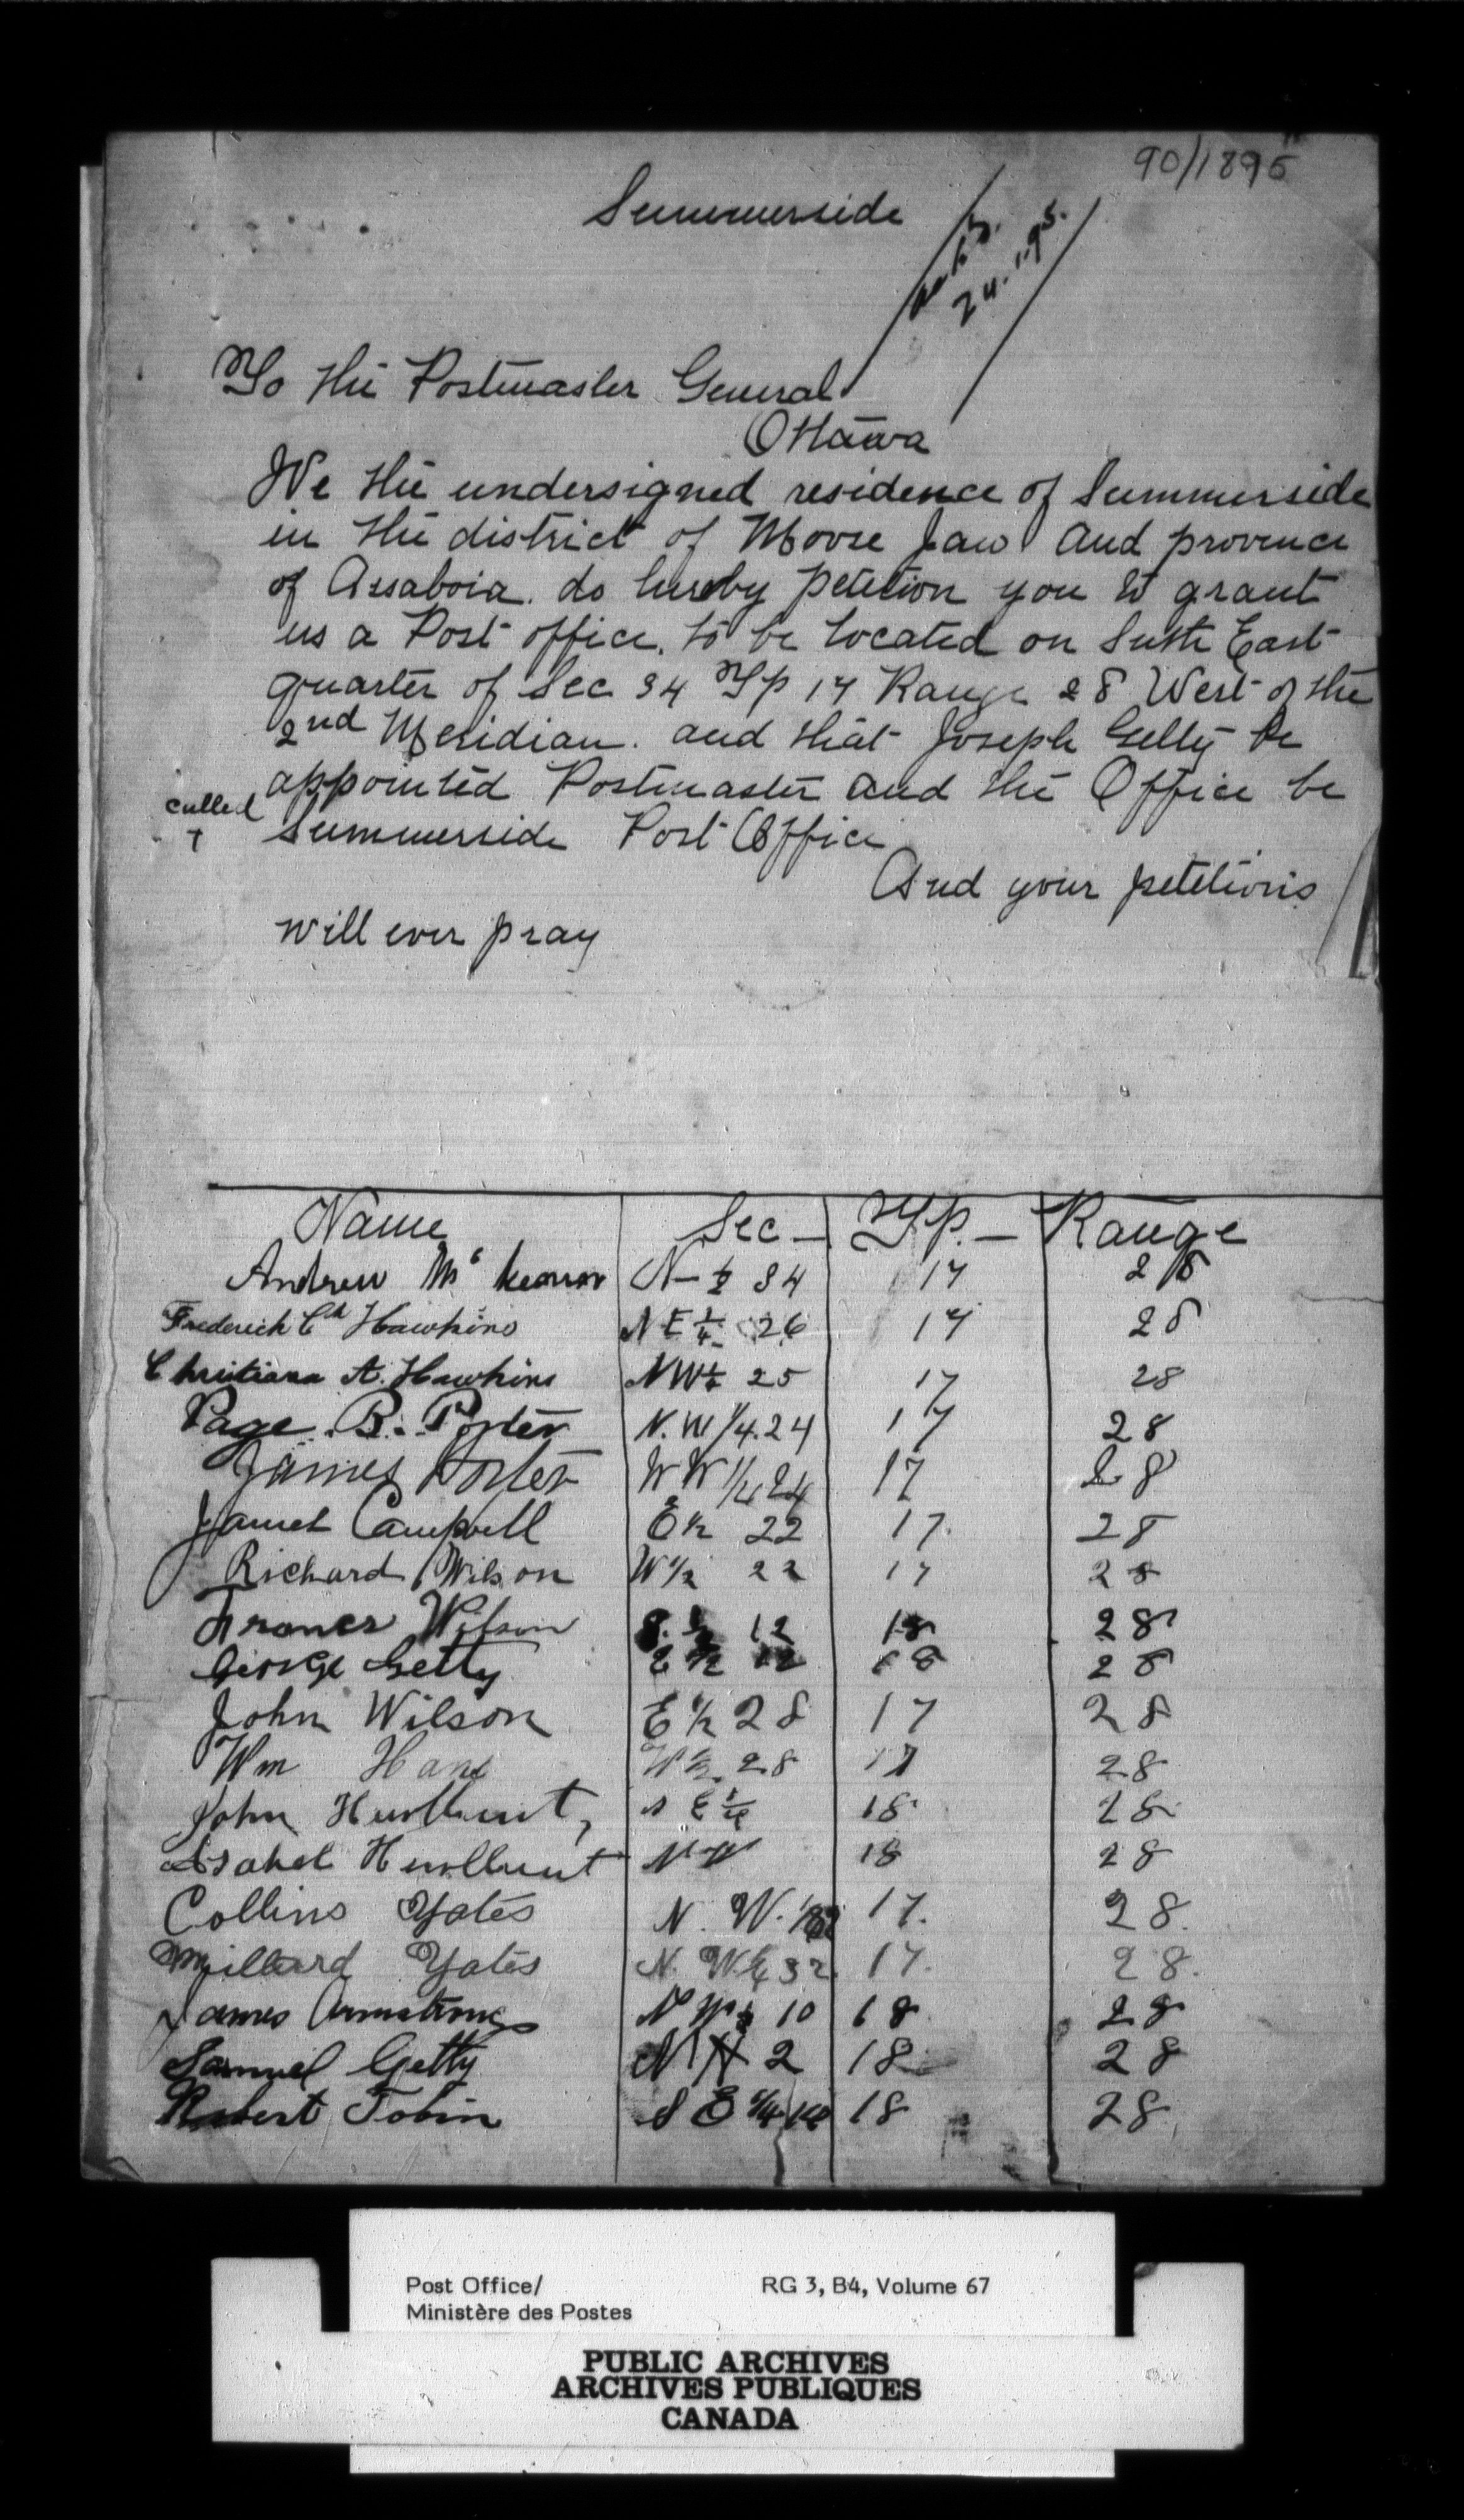 90/1895
Summerside
24.1.95.
To the Postmaster General
Ottawa
We the undersigned residence of Summerside
in the district of Moose Jaw and provence
of Assaboia. do hereby petetion you to grant
us a Post office. to be located on Suth East
quarter of Sec 34 Tp 17 Range 28 West of the
2nd Meridian. and that Joseph Getty be
appointed Postmaster and the Office be
called
Summerside Post Office
And your petetions
will ever pray
Name Sec Tp. Range
Andrew Mc N ½ 34 17 28
Frederich Ch Hawkins NE ¼ 26 17 28
Christiana A. Hawkins NW ¼ 25 17 28
Page. B. Porter N.W 1/4.24 17 28
James Porter 1/4 24 17 28
James Campbell E ½ 22 17. 28
Richard Wilson W ½ 22 17 28
Frances Wilson ½ 12 18 28
George Getty E ½ 12 18 28
John Wilson E ½ 28 17 28
Wm Hane W ½ 28 17 28
John Hurlburt, E ¼ 18 28
Asahel Hurlburt NW 18 28
Collins Yates N. W. 17. 28.
Millard Yates N. W ¼ 32 17. 28.
James Armstrong N W 10 18 28
Samuel Getty N 2 18 28
Robert Tobin S E 1/4 18 28
Post Office/ RG 3, B4, Volume 67
Ministère des Postes
PUBLIC ARCHIVES
ARCHIVES PUBLIQUES
CANADA